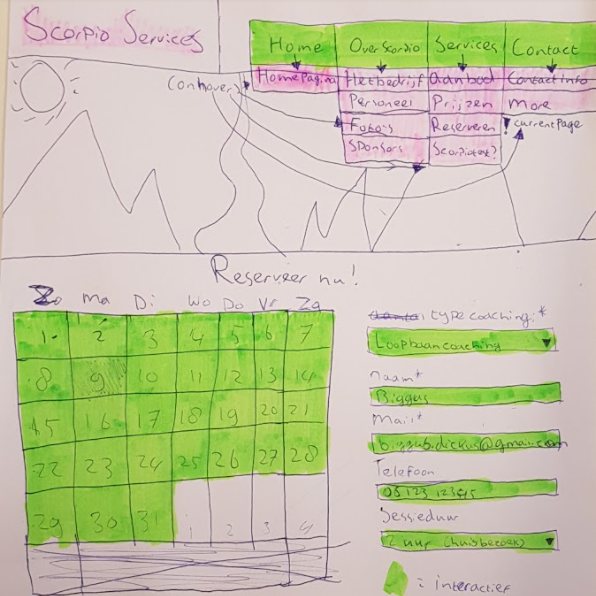 Scorpio Services
Home Over Scorpio Services Contact
Homepagina Het bedrijf Aanbod Contact info
Personeel Prijzen more
Foto's Reserveren ! current page
Sponsors Scorpio test?
(on hover)
Reserveer nu!
Zo Ma Di Wo Do Vr Za
1 2 3 4 5 6 7
8 9 10 11 12 13 14
15 16 17 18 19 20 21
22 23 24 25 26 27 28
29 30 31 1 2 3 4
type coaching:*
Loopbaancoaching
naam*
Biggus
Mail*
biggus.dickus@gmail.com
Telefoon
06 123 12345
Sessieduur
2 uur (huisbezoek)
: interactief